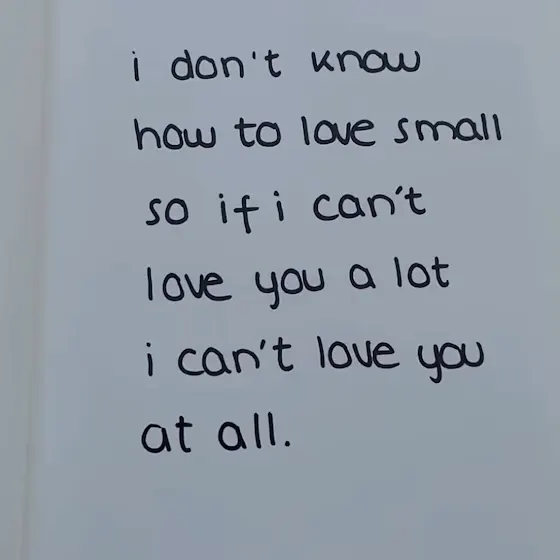 i don't know
how to love small
so if i can't
love you a lot
i can't love you
at all.